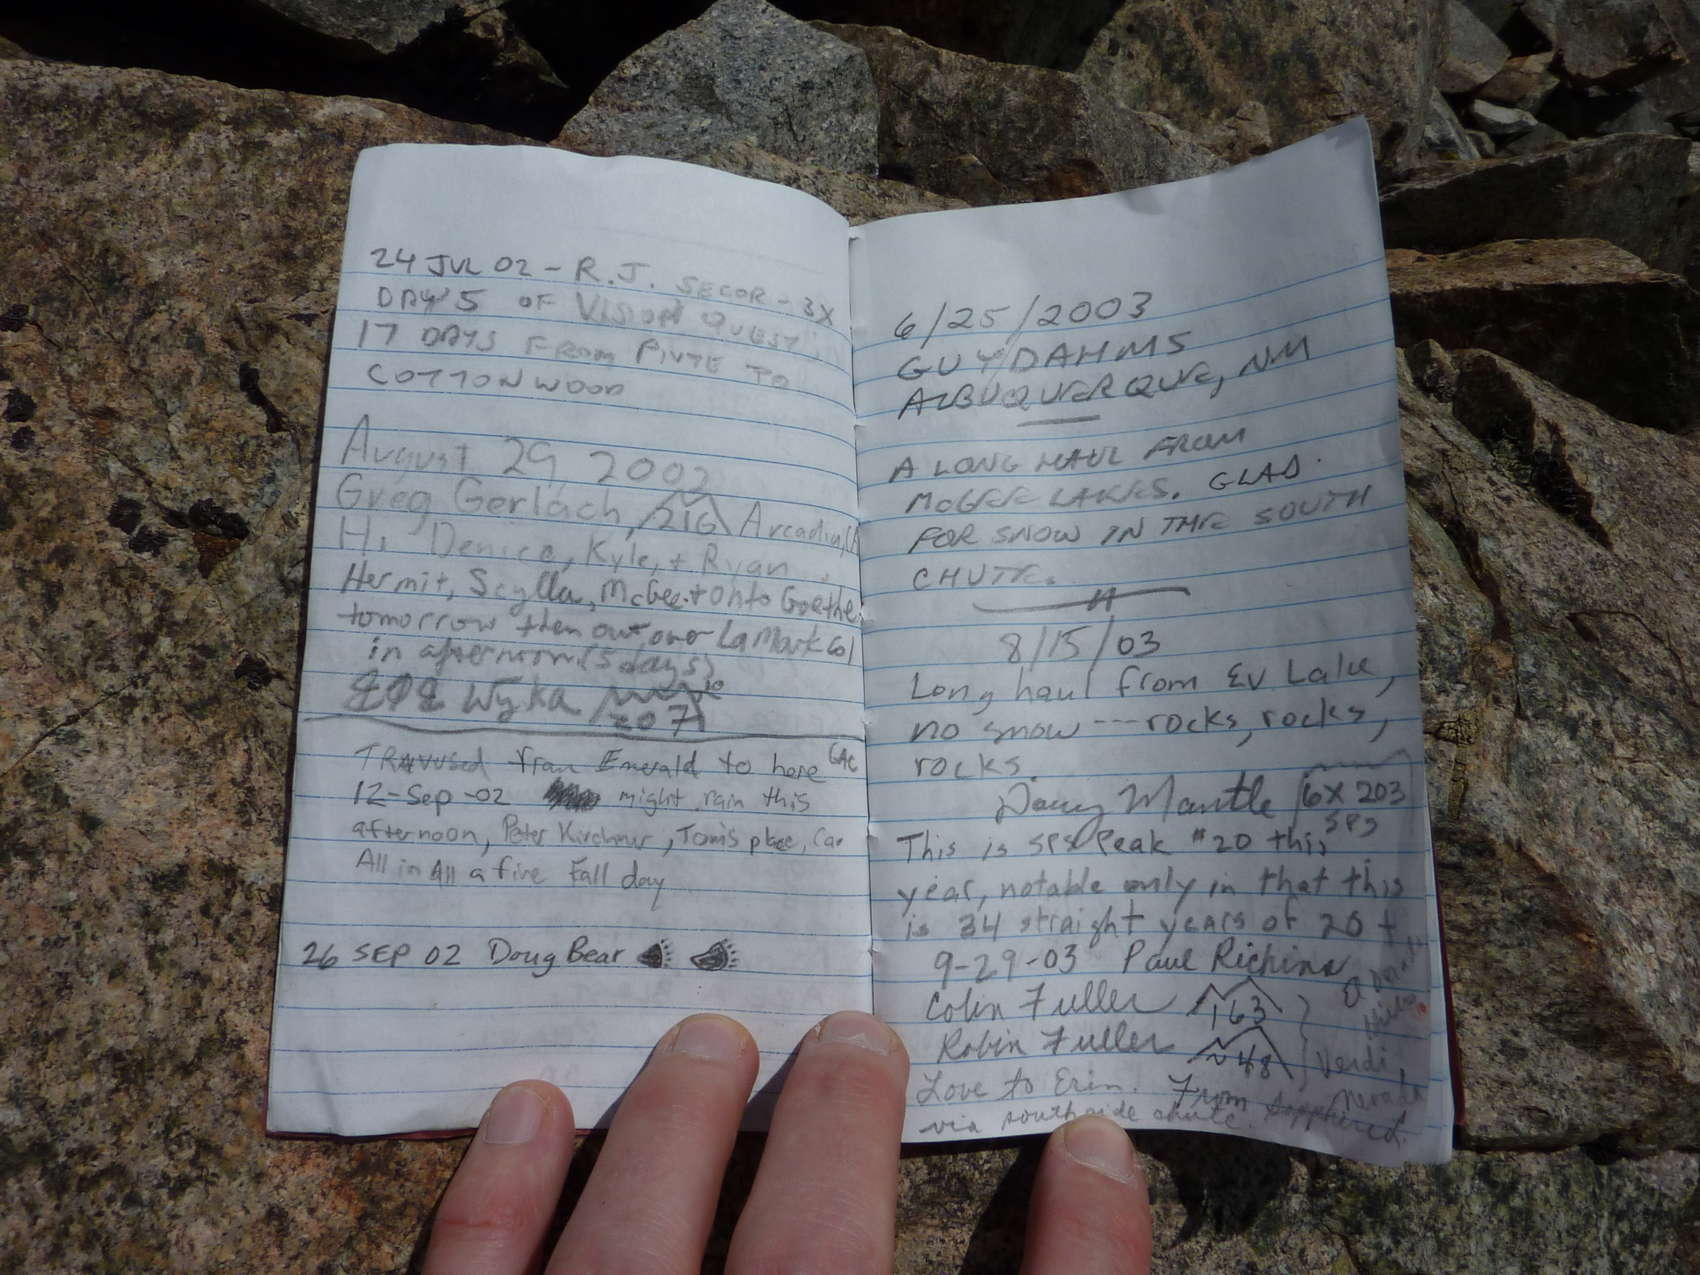 24 JUL 02 - R.J. SECOR - 3X
DAY 5 OF VISION QUEST
17 DAYS FROM PIUTE TO
COTTONWOOD
August 29, 2002
Greg Gerlach, 216 Arcadia, CA
Hi Denice, Kyle, + Ryan
Hermit, Scylla, McGee + onto Goethe
tomorrow then out over LaMark Col
in afternoon (5 days)
Wyka
207
from Emerald to here
12-Sep-02 might rain this
afternoon, Peter Kirchner, Tom's place, Ca.
All in All a fine Fall day
26 SEP 02 Doug Bear
6/25/2003
GUY DAHMS
ALBUQUERQUE, NM
A LONG HAUL FROM
McGEE LAKES. GLAD
FOR SNOW IN THE SOUTH
CHUTE.
8/15/03
Long haul from Ev Lake,
no snow --- rocks, rocks,
rocks
Doug Mantle 6X 203
SPS
This is SPS Peak #20 this
year, notable only in that this
is 34 straight years of 20+
9-29-03 Paul Richins
Colin Fuller 163
Robin Fuller ~48 Verdi
Nevada
Love to Erin. From Sapphire L.
via south side chute.